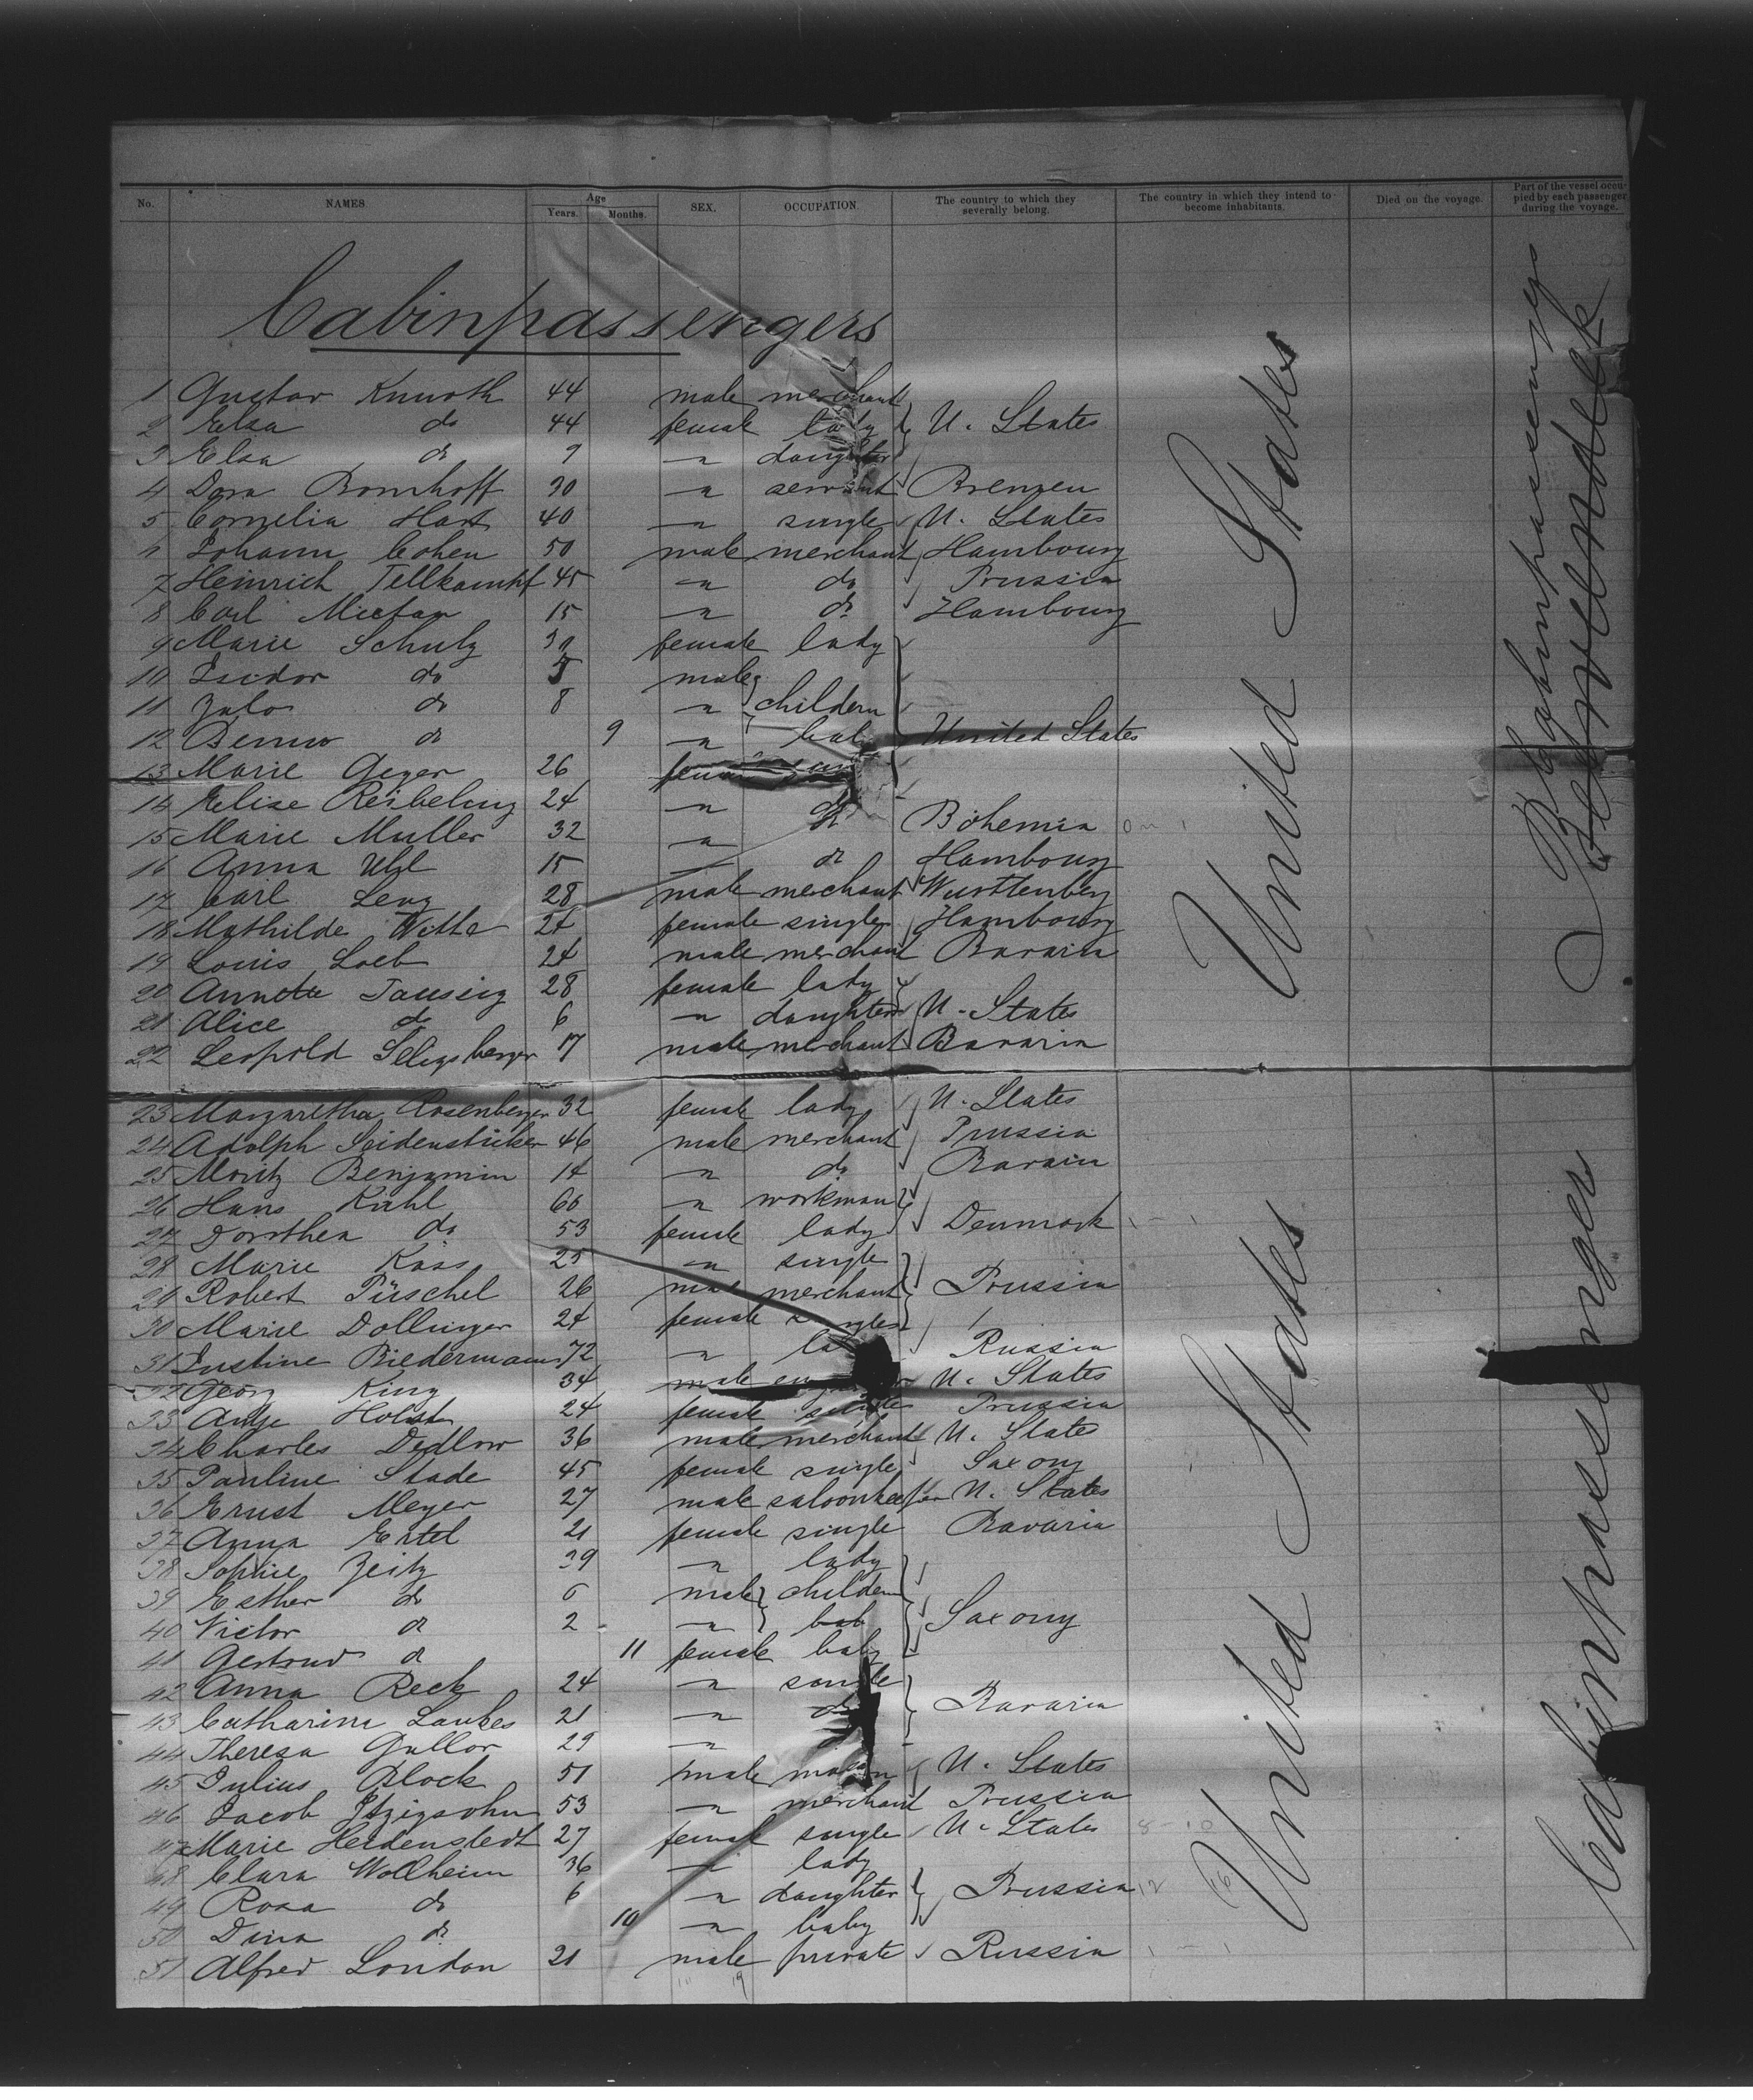 No. NAMES. Age Years. Months. SEX. OCCUPATION. The country to which they severally belong. The country in which they intend to become inhabitants. Died on the voyage. Part of the vessel occupied by each passenger during the voyage.
Cabinpassengers
1 Gustav Knuoth 44 male merchant
2 Elsa do 44 female lady U. States
3 Elsa do 9 — " daughter
4 Dora Bomhoff 30 — " servant Bremen
5 Cornelia Hart 40 — " single U. States
6 Johann Cohen 50 male merchant Hambourg
7 Heinrich Tellkampf 45 — " do Prussia
8 Carl 15 — " do Hambourg
9 Marie Schulz 30 female lady
10 Isidor do 5 male
11 do 8 — " childern
12 Benno do 9 — " baby United States
13 Marie Geyer 26
14 Elise Reibeling 24 — " do
15 Marie Muller 32 — " Bohemia
16 Anna Uhl 15 — do Hambourg
17 Carl Leng 28 male merchant Wurttenberg
18 Mathilde Witte 24 female single Hambourg
19 Louis Loeb 24 male merchant Bavaria
20 Annette Taussig 28 female lady
21 Alice do 6 — " daughter U. States
22 Leopold Seligsberger 17 male merchant Bavaria
23 Margaretha Rosenberger 32 female lady U. States
24 Adolph Seidenstücker 46 male merchant Prussia
25 Moritz Benjamin 14 — " do Bavaria
26 Hans Kühl 60 — " workman
27 Dorothea do 53 female lady Denmark
28 Marie Käss 25 — " single
29 Robert Püschel 26 male merchant Prussia
30 Marie Dollinger 24 female
31 Justine Biedermann 72 — " Russia
32 Georg King 34 male U. States
33 Antje Holst 24 female single Prussia
34 Charles Dedlow 36 male merchant U. States
35 Pauline Stade 45 female single Saxony
36 Ernst Meyer 27 male saloonkeeper U. States
37 Anna Ertel 21 female single Bavaria
38 Sophie Zeitz 39 — " lady
39 Esther do 6 male childern
40 Victor do 2 — " Saxony
41 Gertrud do 11 female baby
42 Anna Reck 24 — " single
43 Catharina Laukes 21 — " do Bavaria
44 Theresa Gullor 29 — "
45 Julius Block 51 male mason U. States
46 Jacob Itzigsohn 53 — " merchant Prussia
47 Marie Heidenstedt 27 female single U. States
48 Clara Wollheim 36 — " lady
49 Rosa do 6 — " daughter Prussia
50 Dina do 10 — " baby
51 Alfred London 21 male private Russia
United States
United States
Cabinpassengers